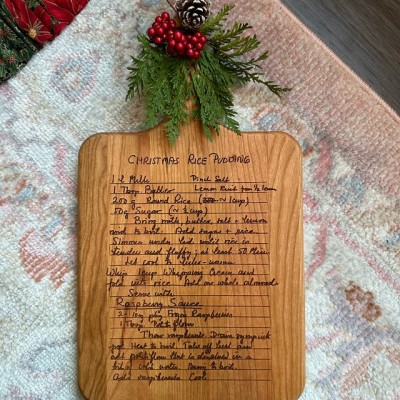 CHRISTMAS RICE PUDDING
1 l Milk Pinch Salt
1 Tbsp Butter Lemon Rind from ½ lemon
200 g Round Rice (~ 1 cup)
50g Sugar (~ ¼ cup)
Bring milk, butter, salt + lemon
rind to boil. Add sugar + rice.
Simmer under lid until rice is
tender and fluffy; at least 50 Min.
Let cool to luke-warm
Whip 1 cup Whipping Cream and
fold into rice. Add one whole almond.
Serve with:
Raspberry Sauce
2 10oz pkg Frozen Raspberries
1 Tbsp Potato flour
Thaw raspberries. Drain syrup into
pot. Heat to boil. Take off heat and
add potato flour that is dissolved in a
little cold water. Return to boil.
Add raspberries. Cool.